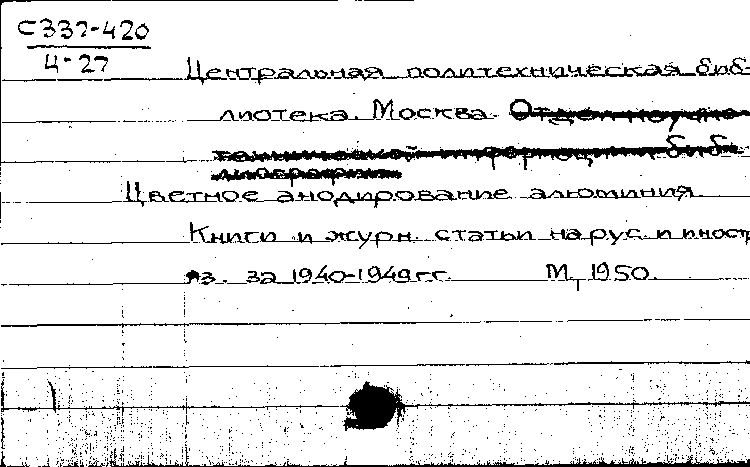 С337-420
Ц-27
Центральная политехническая биб-
лиотека. Москва. Отдел научно-
технической информации и биб-
лиографии
Цветное анодирование алюминия
Книги и журн. статьи на рус. и иностр
яз. за 1940-1949 гг. М, 1950.